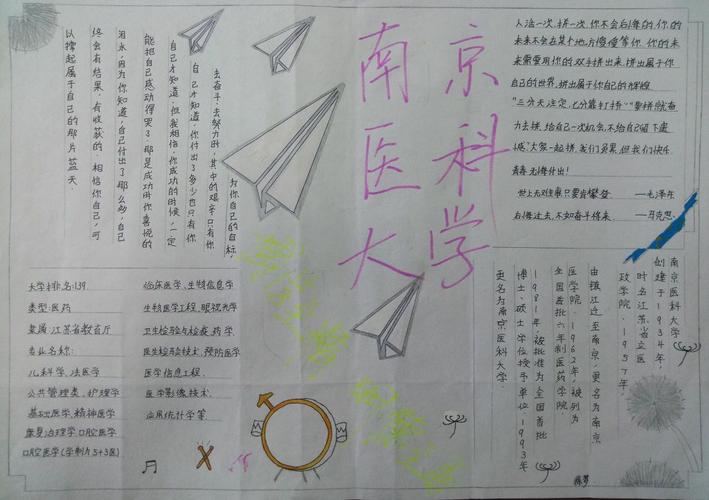 南京
医科
大学
人活一次,拼一次,你不会后悔的,你的
未来不会在某个地方傻傻等你,你的未
来需要用你的双手拼出来,拼出属于你
自己的世界,拼出属于你自己的辉煌
"三分天注定,七分靠打拼""要拼就奋
力去拼,给自己一次机会,不给自己留下遗
憾"大家一起拼,我们负累,但我们快乐
青春无悔付出!
世上无难事只要肯攀登 —毛泽东
后悔过去,不如奋斗将来 —马克思
为你自己的目标,
去奋斗,去努力时,其中的艰辛只有你
自己才知道,你付出了多少也只有你
自己才知道,但我相信,你成功的时候,一定
能把自己感动得哭了,那是成功时你喜悦的
泪水,因为你知道,自己付出了那么多,自己
终会有结果,有收获的,相信你自己,可
以撑起属于自己的那片蓝天.
大学排名:139
类型:医药
隶属:江苏省教育厅
专业名称:
儿科学、法医学
公共管理类、护理学
基础医学、精神医学
康复治疗学、口腔医学
口腔医学(学制为5+3医)
临床医学、生物信息学
生物医学工程、眼视光学
卫生检验与检疫、药学
医学检验技术、预防医学
医学信息工程、
医学影像技术、
应用统计学等.
南京医科大学
创建于1934年,
时名江苏省立医
政学院.1957年,
由镇江迁至南京,更名为南京
医学院.1962年,被列为
全国首批六年制医药学院.
1981年,被批准为全国首批
博士、硕士学位授予单位.1993年
更名为南京医科大学.